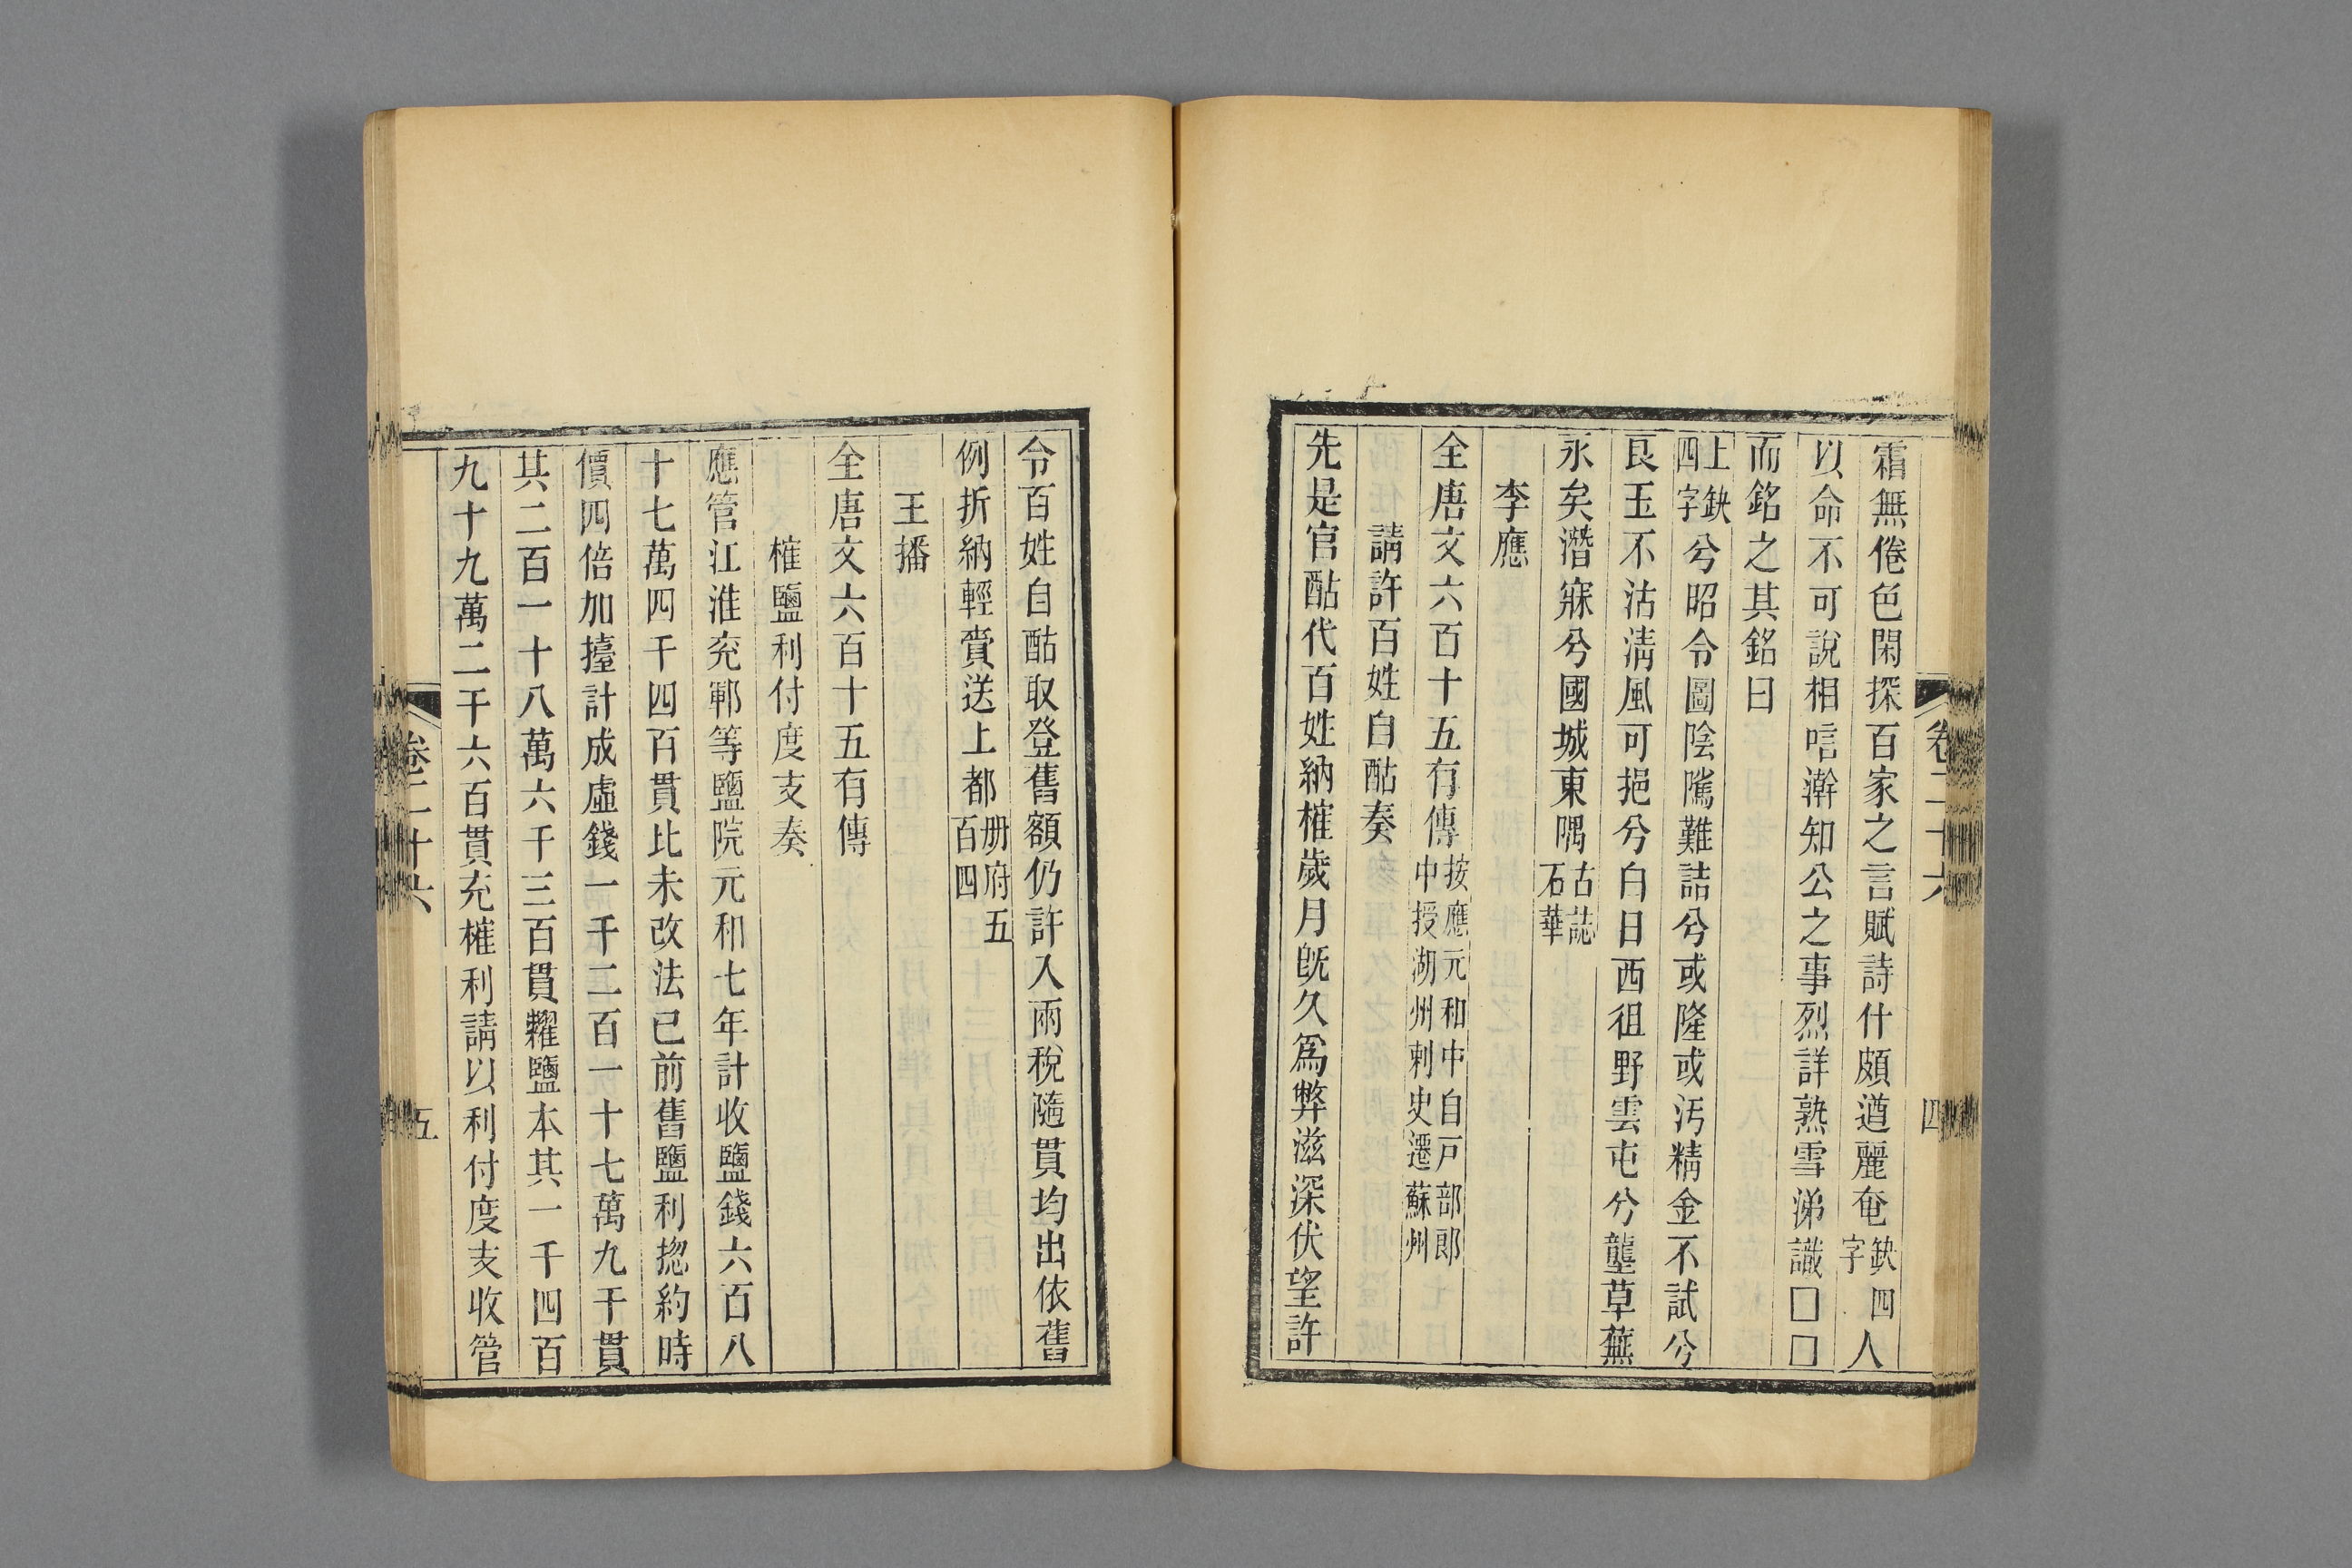 霜無倦色閑探百家之言賦詩什頗遒麗奄缺四字人
以命不可說相唁澣知公之事烈詳熟雪涕識□□
而銘之其銘曰
上缺四字兮昭令圖陰隲難諳兮或隆或汚精金不試兮
良玉不沽淸風可挹兮白日西徂野雲屯兮壟草蕪
永矣潛寐兮國城東隅古誌石華
李應
全唐文六百十五有傳按應元和中自戸部郎中授湖州刺史遷蘇州
請許百姓自酤奏
先是官酤代百姓納榷歲月旣久爲弊滋深伏望許
卷二十六
四
令百姓自酤取登舊額仍許入兩稅隨貫均出依舊
例折納輕賫送上都册府五百四
王播
全唐文六百十五有傳
榷鹽利付度支奏
應管江淮兖鄆等鹽院元和七年計收鹽錢六百八
十七萬四千四百貫比未改法已前舊鹽利揔約時
價四倍加擡計成虛錢一千二百一十七萬九千貫
其二百一十八萬六千三百貫糶鹽本其一千四百
九十九萬二千六百貫充榷利請以利付度支收管
卷二十六
五